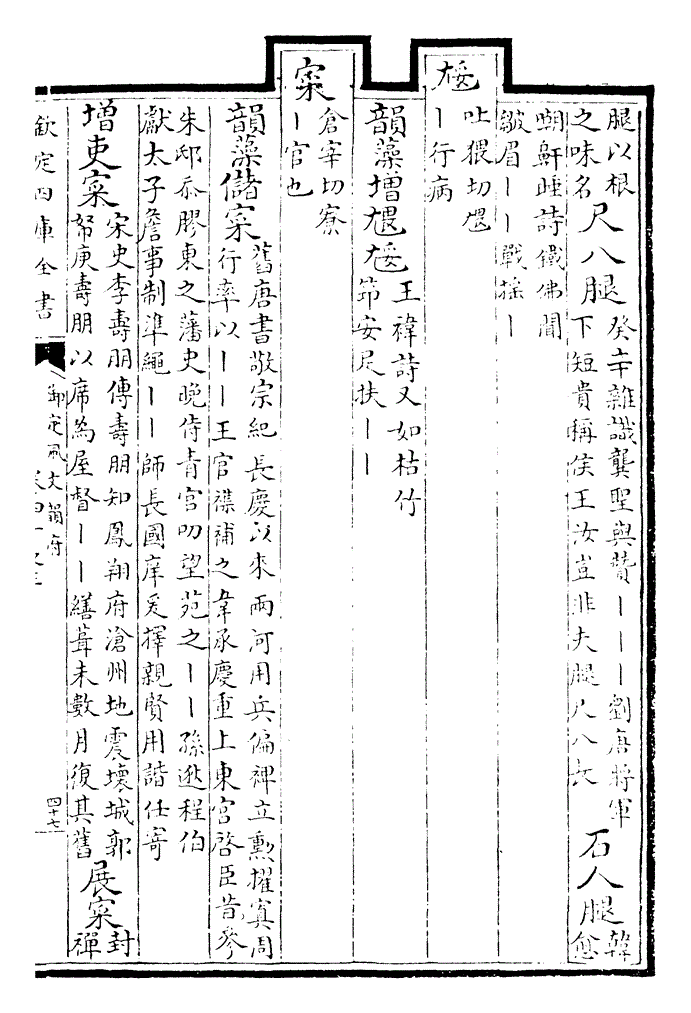 腿以根
之味名
尺八腿
癸辛雜識龔聖與贊丨丨丨劉唐將軍
下短貴稱侯王汝豈非夫腿尺八長
石人腿
韓愈
嘲鼾睡詩鐵佛聞
皺眉丨丨戰揺丨
㾯
吐猥切㾯
丨行病
韻藻增
王褘詩又如枯竹
笻安足扶丨丨
寀
倉宰切寮
丨官也
韻藻儲寀
舊唐書敬宗紀長慶以來兩河用兵偏裨立勲擢寘周
行率以丨丨王官襍補之韋承慶重上東宫啓臣昔參
朱邸忝膠東之藩史晚侍青宫叨望苑之丨丨孫逖程伯
獻太子詹事制準繩丨丨師長國庠爰擇親賢用諧任寄
增吏寀
宋史李壽朋傳壽朋知鳳翔府滄州地震壞城郭
帑庾壽朋以席為屋督丨丨繕葺未數月復其舊
展寀
封
禪
欽定四庫全書
御定佩文韻府
四十七